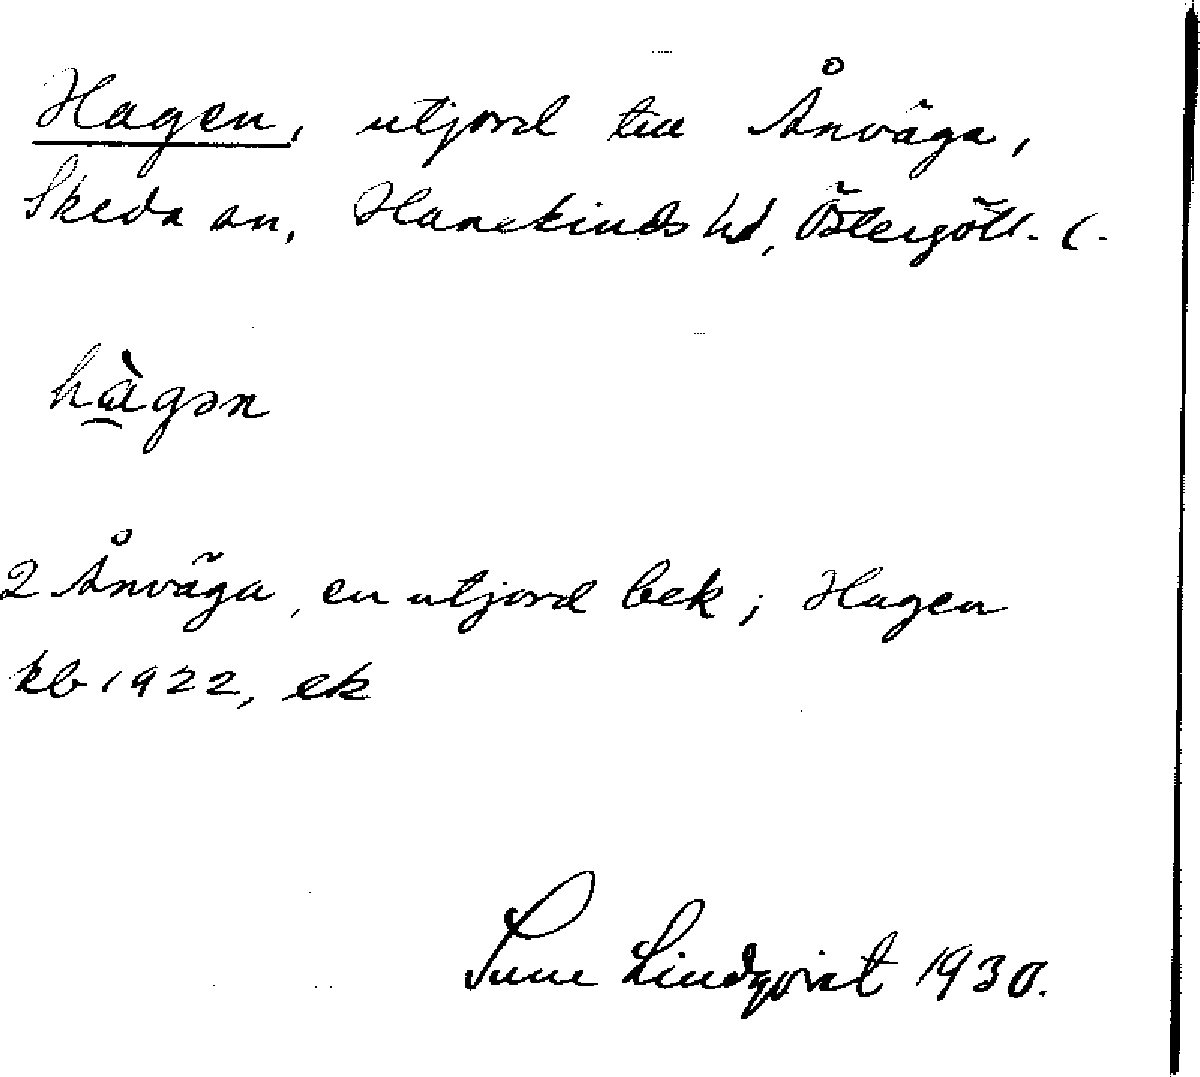 Hagen, utjord till Ånväga,
Skeda sn, Hanekinds hd, Östergötl. l.
hàgən
2 Ånväga, en utjord bek; Hagen
kb 1922, ek
Sune Lindqvist 1930.